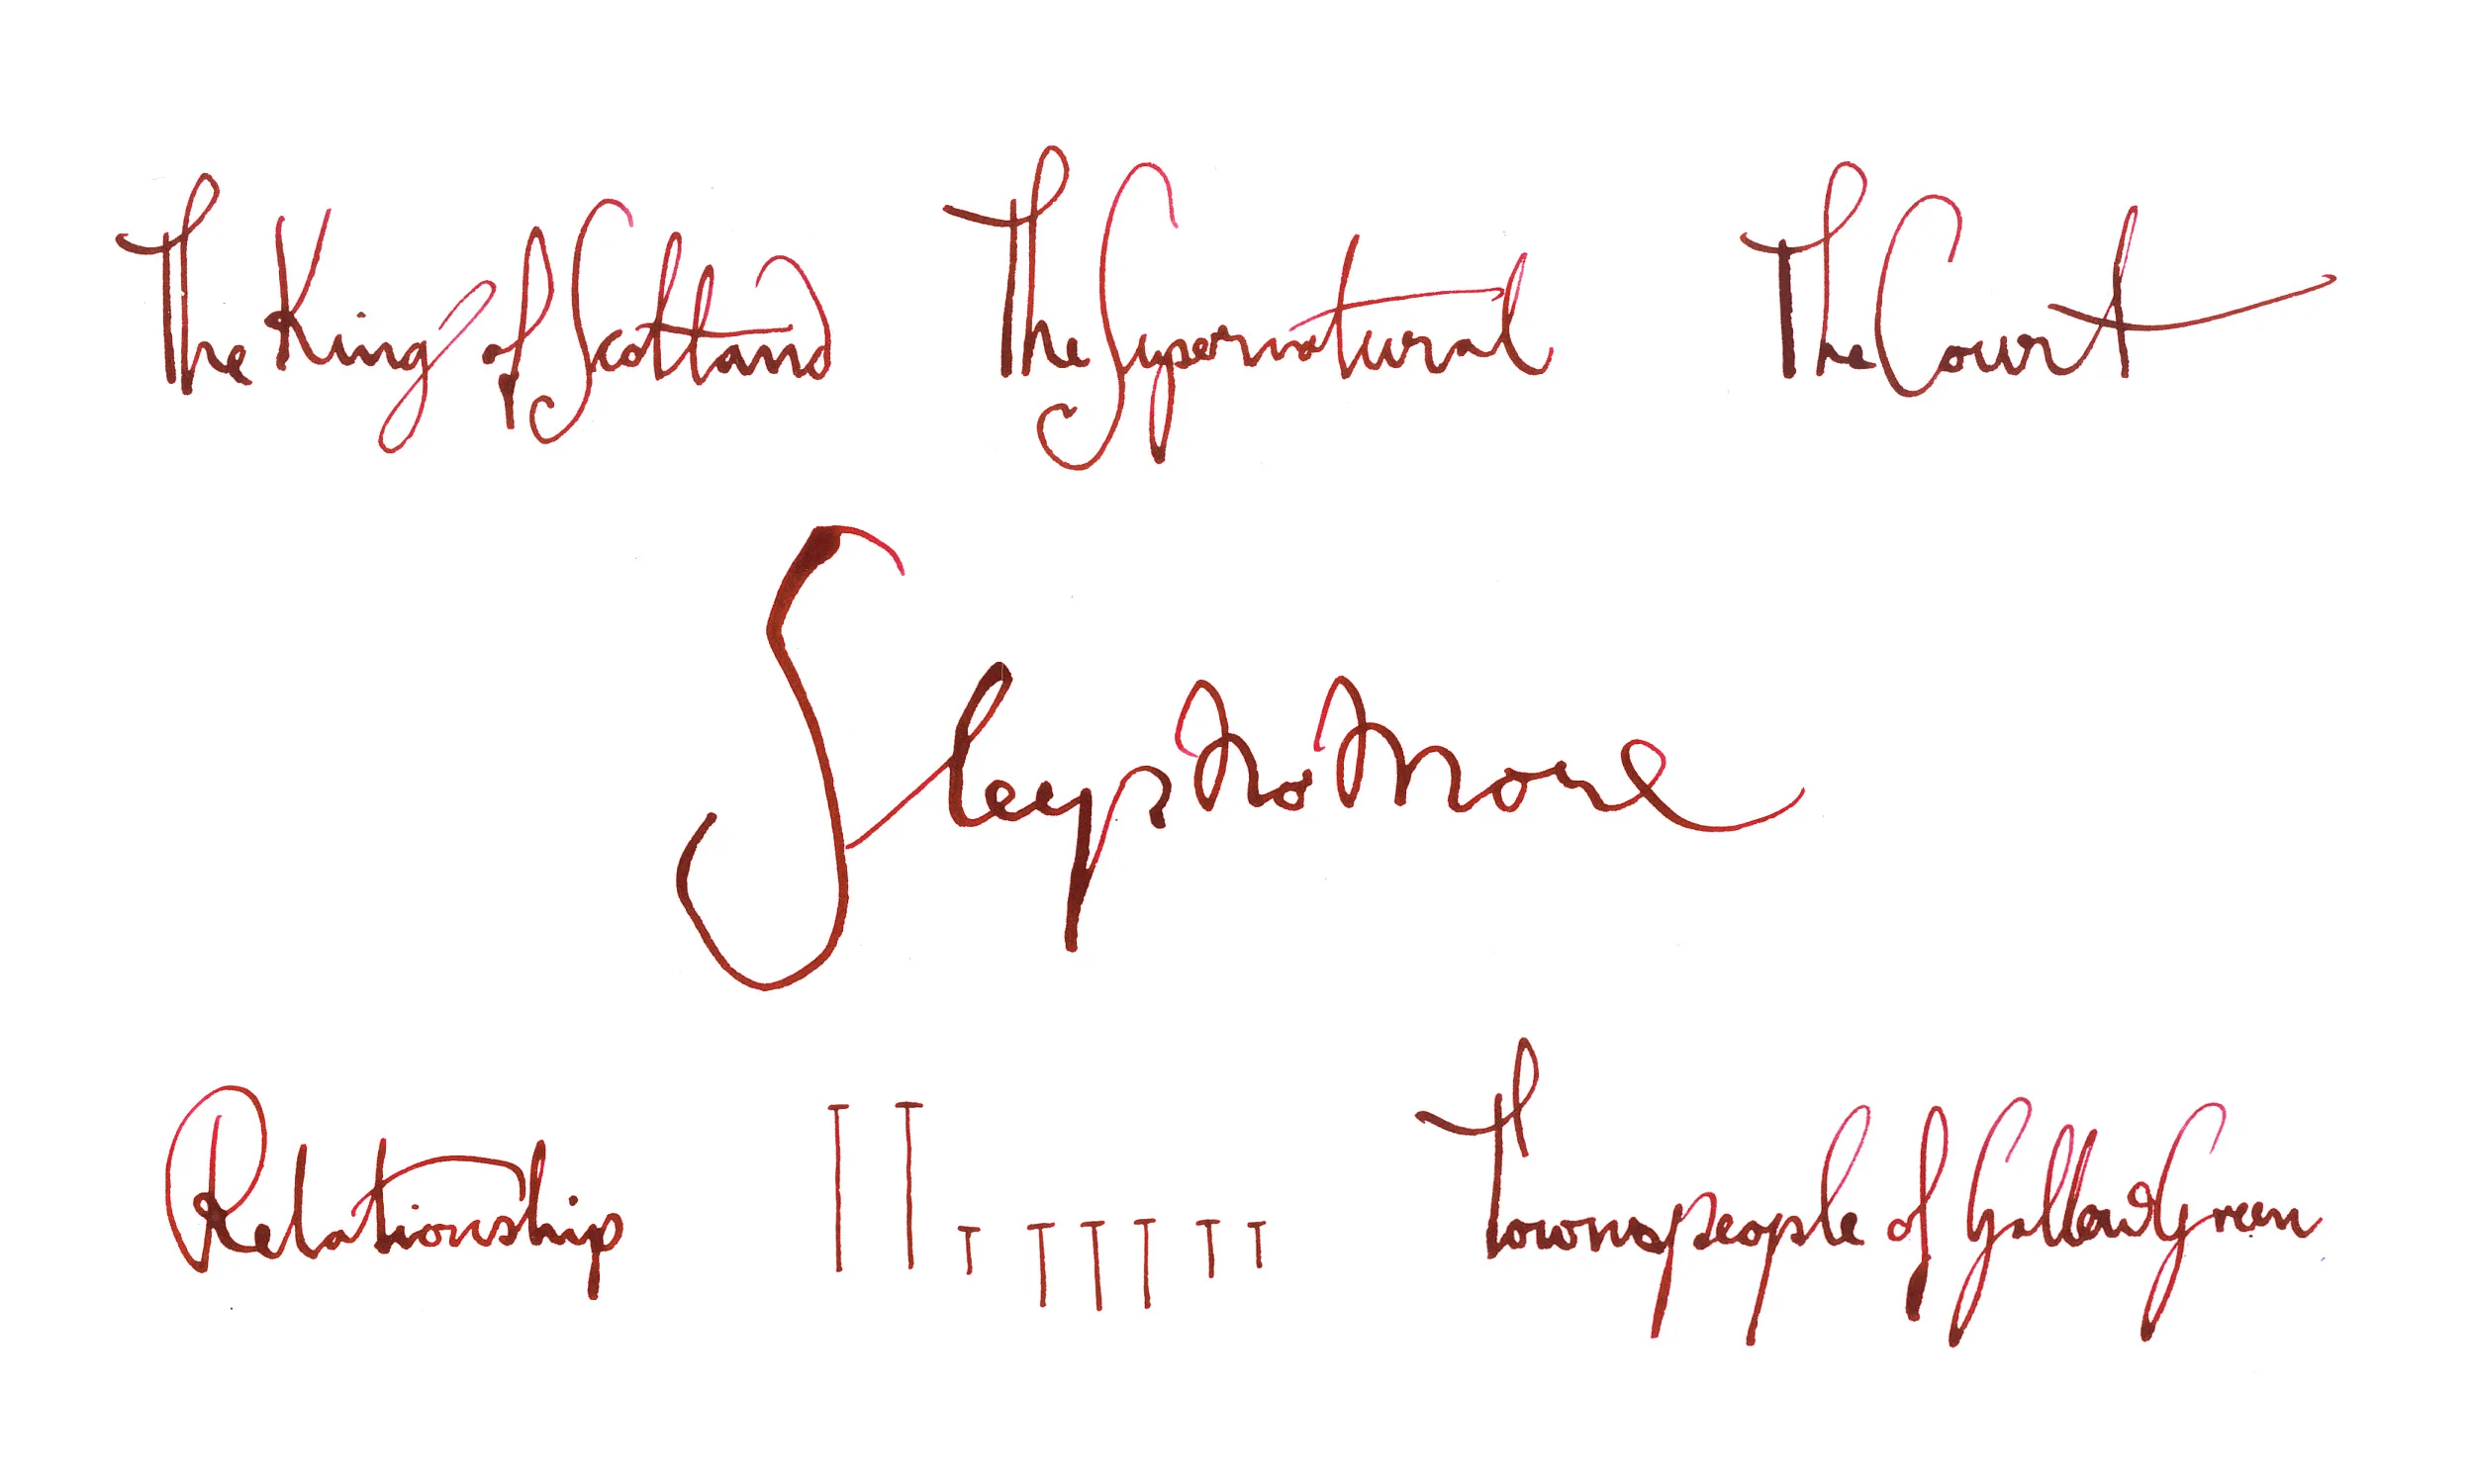 The King of Scotland
The Supernatural
The Court
Sleep No More
Relationship
Townspeople of Gallow Green